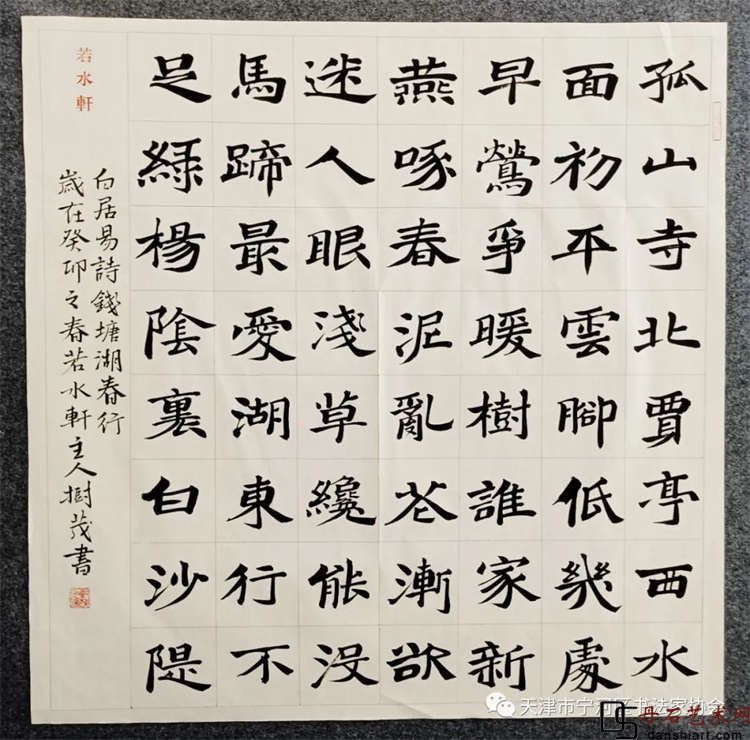 孤山寺北賈亭西水
面初平雲腳低幾處
早鶯爭暖樹誰家新
燕啄春泥亂花漸欲
迷人眼淺草纔能沒
馬蹄最愛湖東行不
足綠楊陰裏白沙隄
白居易詩錢塘湖春行
歲在癸卯之春若水軒主人樹茂書
若水軒
天津市宁河区书法家协会
丹石艺术网
danshiart.com